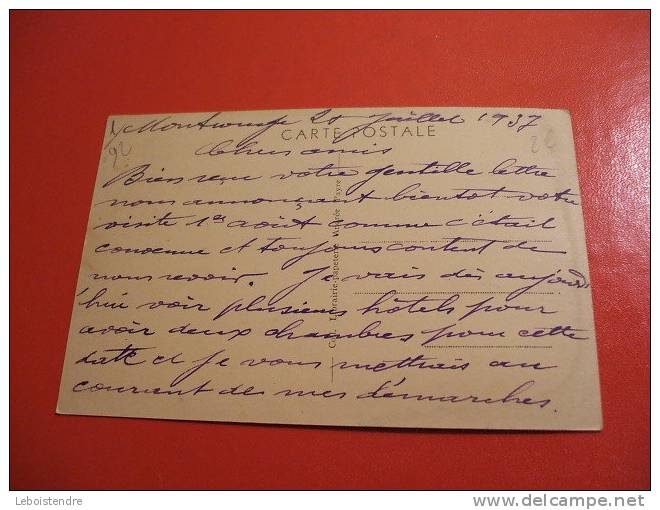 Montrouge 20 Juillet 1937
CARTE POSTALE
Chers amis
Bien reçu votre gentille lettre
nous annonçant bientot votre
visite 1er août comme c'était
convenu et toujours content de
nous revoir. Je vais dès aujourd
hui voir plusieurs hôtels pour
avoir deux chambres pour cette
date et je vous mettrais au
courant de mes démarches.
Librairie-Papeterie
Leboistendre
delcampe.net